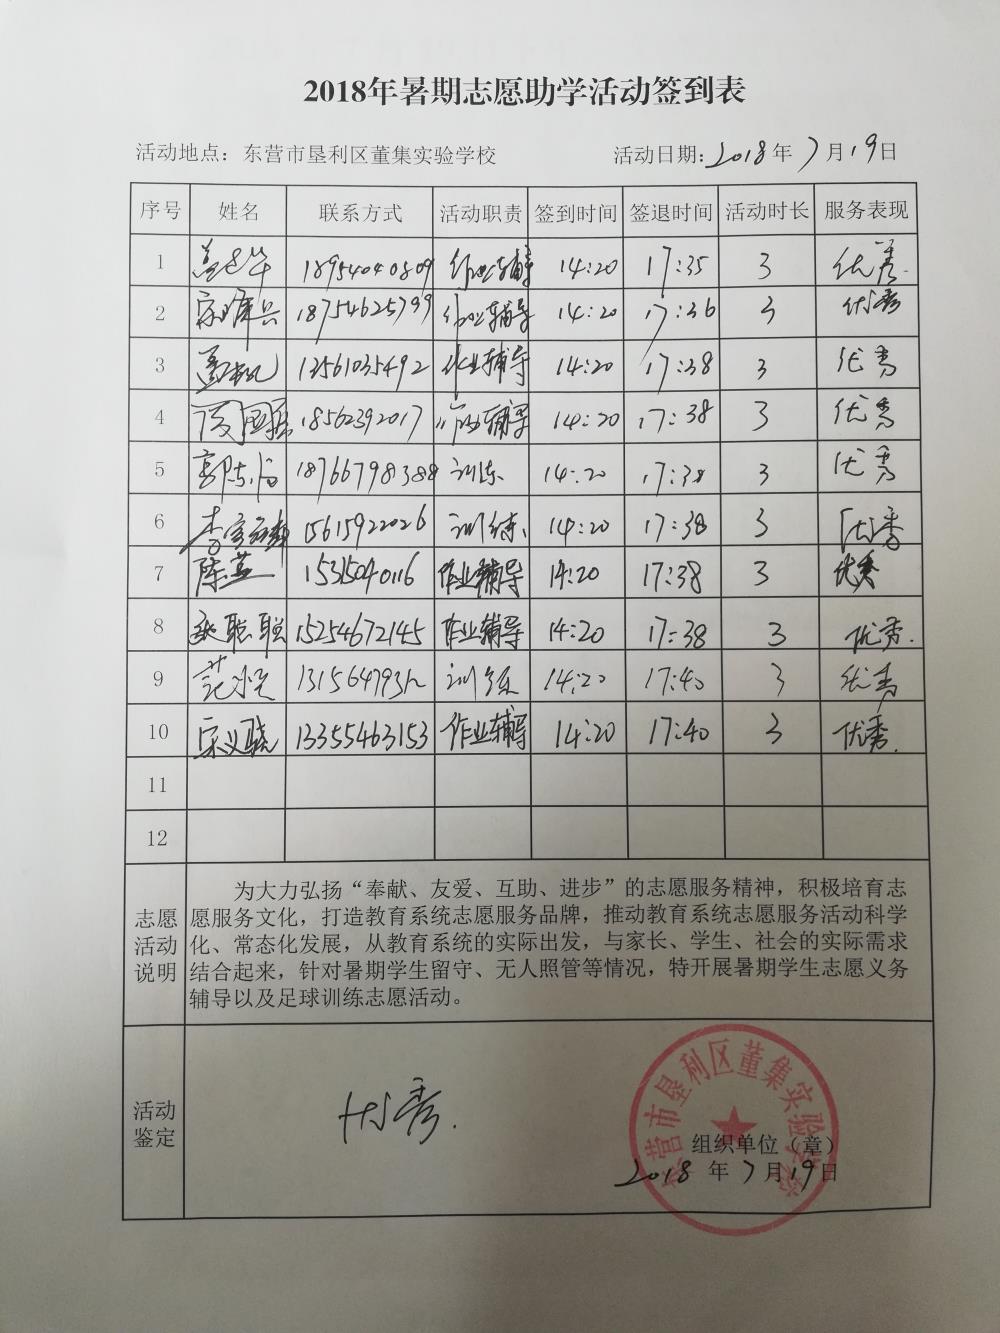 2018年暑期志愿助学活动签到表
活动地点：东营市垦利区董集实验学校 活动日期：2018年7月19日
序号 姓名 联系方式 活动职责 签到时间 签退时间 活动时长 服务表现
1 18954040809 作业辅导 14:20 17:35 3 优秀.
2 18754625799 作业辅导 14:20 17:36 3 优秀
3 13561035492 作业辅导 14:20 17:38 3 优秀
4 18562392017 作业辅导 14:20 17:38 3 优秀
5 18766798388 训练 14:20 17:38 3 优秀
6 15615922026 训练 14:20 17:38 3 优秀
7 陈燕 15315040116 作业辅导 14:20 17:38 3 优秀
8 张聪聪 15254672145 作业辅导 14:20 17:38 3 优秀.
9 训练 14:20 17:40 3 优秀
10 宋义骁 13355463153 作业辅导 14:20 17:40 3 优秀.
11
12
志愿活动说明
为大力弘扬“奉献、友爱、互助、进步”的志愿服务精神，积极培育志
愿服务文化，打造教育系统志愿服务品牌，推动教育系统志愿服务活动科学
化、常态化发展，从教育系统的实际出发，与家长、学生、社会的实际需求
结合起来，针对暑期学生留守、无人照管等情况，特开展暑期学生志愿义务
辅导以及足球训练志愿活动。
活动鉴定
优秀.
东营市垦利区董集实验学校
组织单位（章）
2018年7月19日